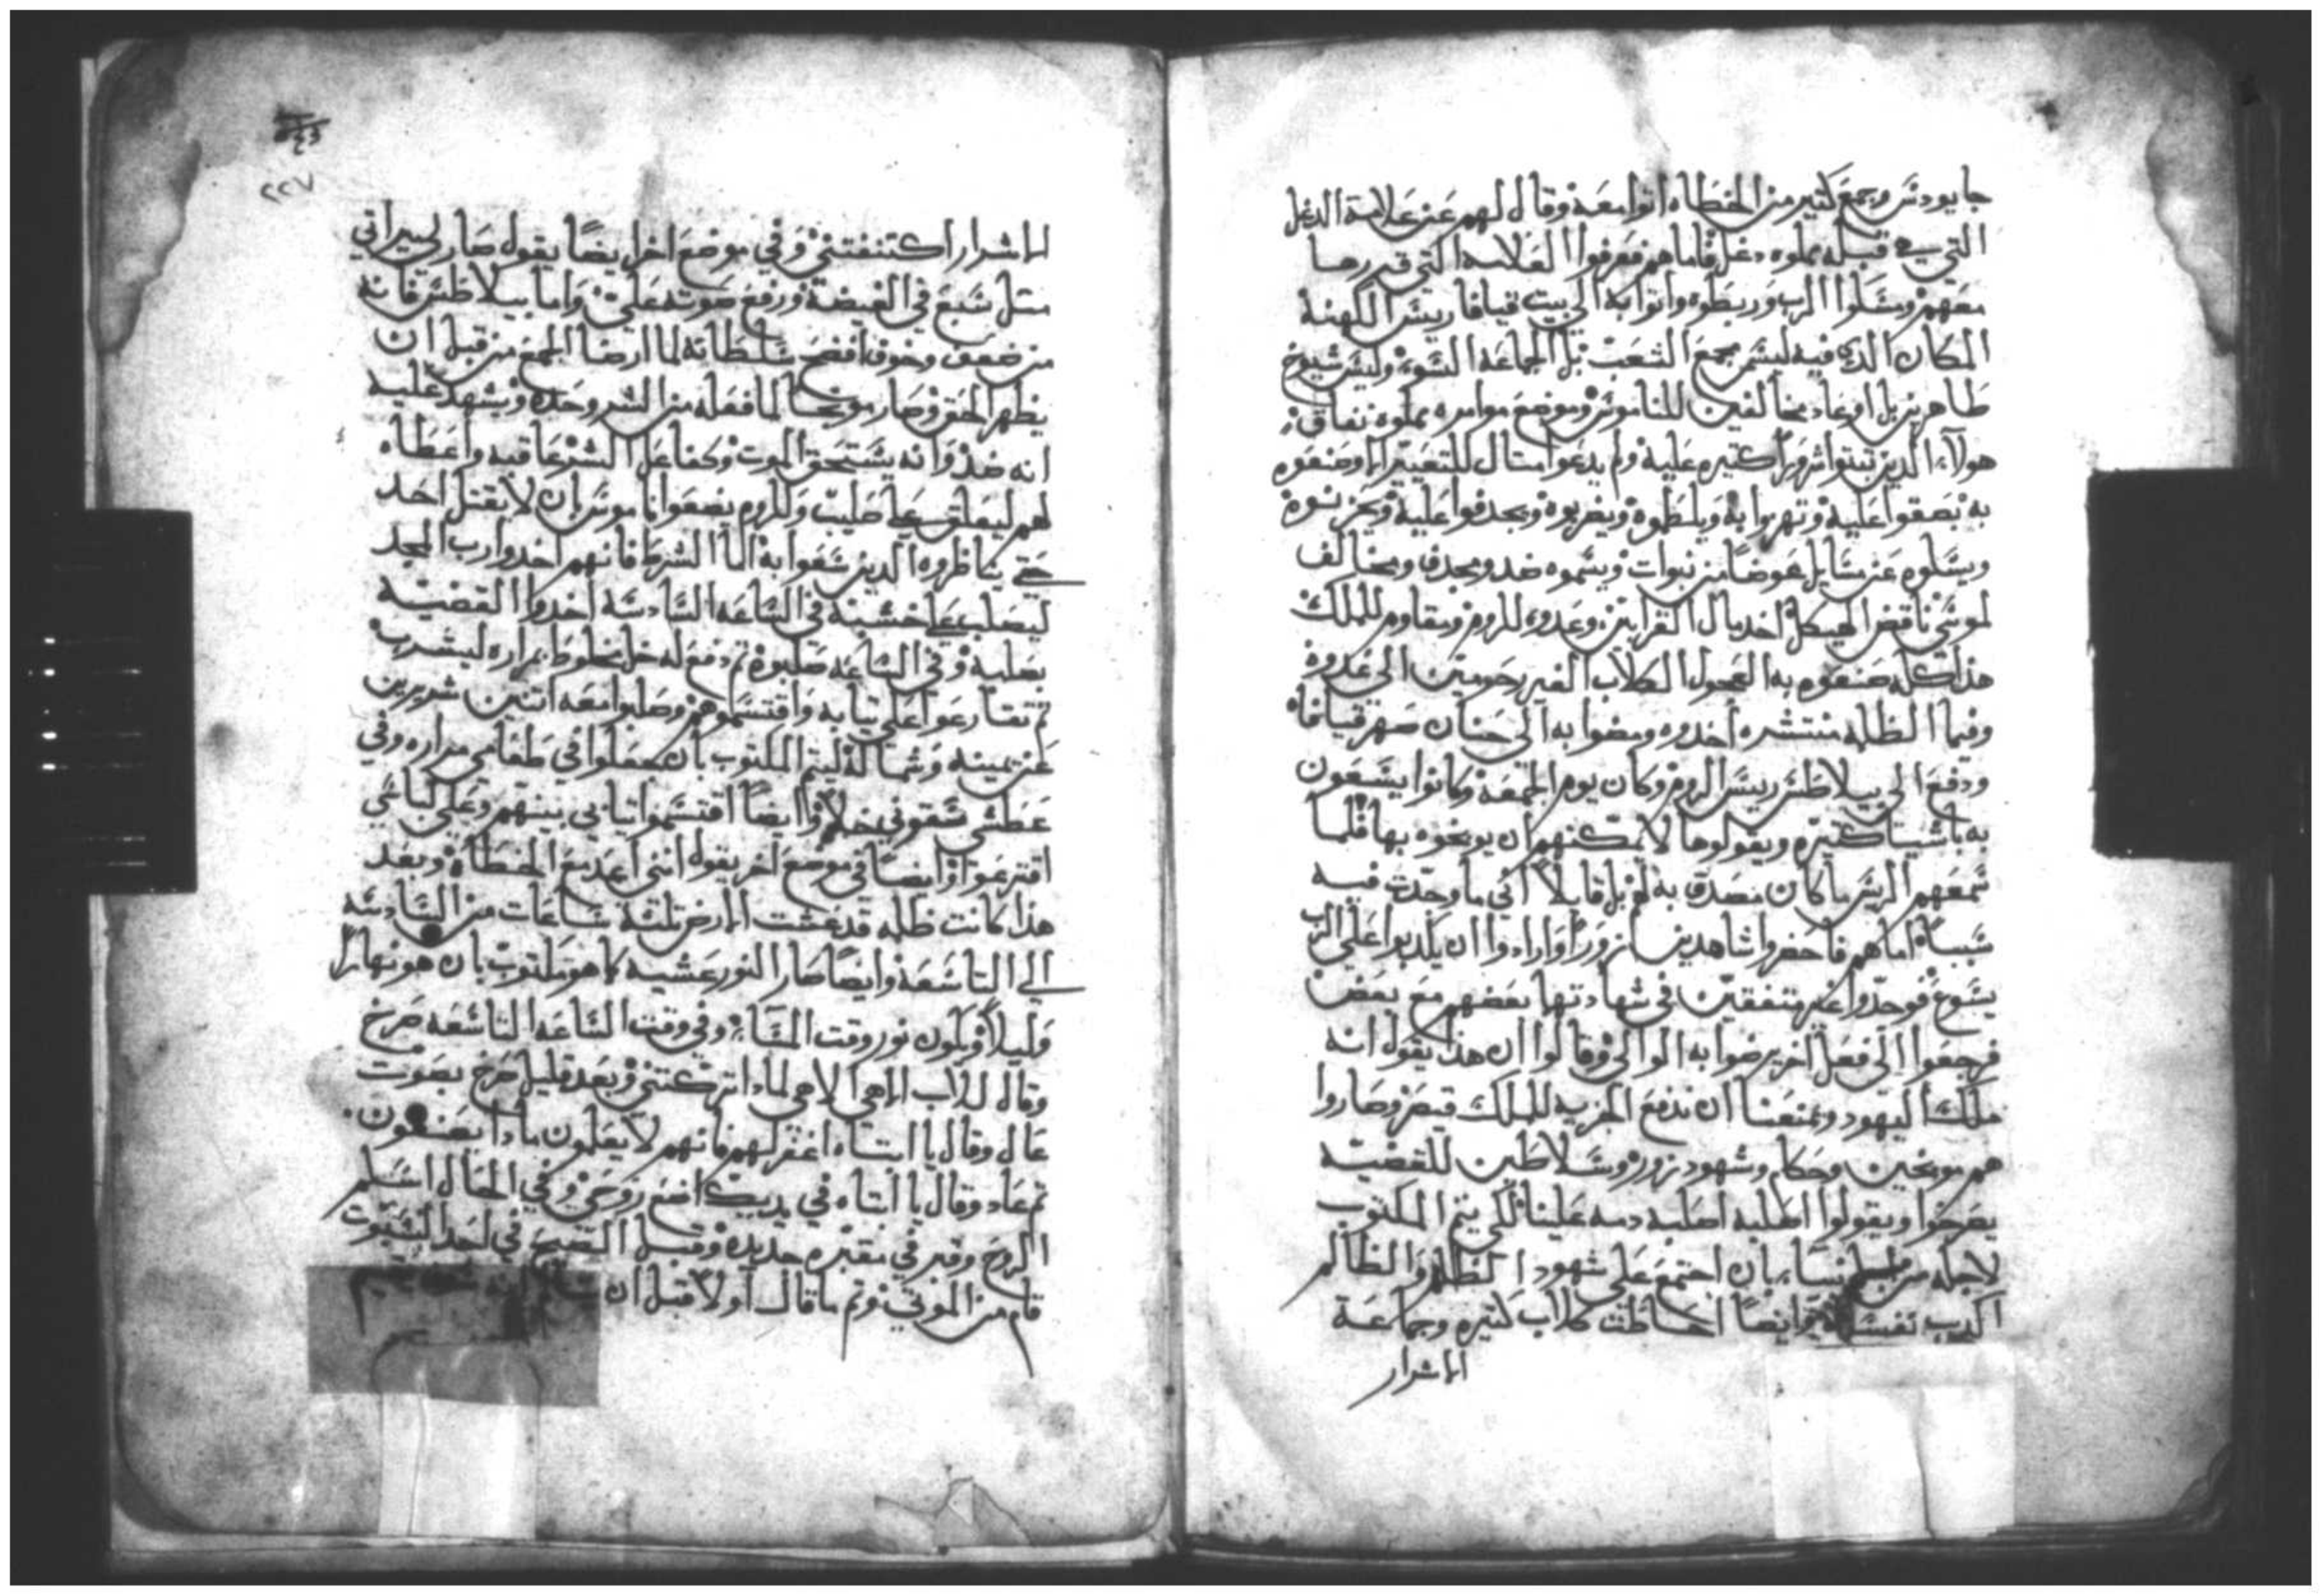 جا يودس وجمع كتير من الخطاه اتوا معه وقال لهم عن علامة الدغل
التي قبله مملوه دغل فاما هم فعرفوا العلامه التي قررها
معهم ومسكوا الرب وربطوه واتوا به الي بيت قيافا ريس الكهنة
المكان الدي فيه ليس مجمع الشعب بل الجماعه السوء وليس شيوخ
طاهرين بل اوغاد مخالفين للناموس وموضع موامره مملوه نفاق
هولاء الدين تبتوا شرورا كتيره عليه ولم يدعوا متال للتعيير الا وصنعوه
به بصقوا عليه وتهزوا به ويلطموه ويضربوه ويجدفوا عليه
ويسلوه عن مسايل عوضا من نبوات ويسموه ضد ومجدف ومخالف
لموسي ناقض الهيكل اخد مال القرابين وعدو للروم ومقاوم للملك
هدا كله صنعوه به العجول الكلاب الغير رحومين الي غدوة
وفيما الظلمه منتشره اخدوه ومضوا به الي حنان صهر قيافا
ودفع الي بيلاطس ريس الروم وكان يوم الجمعة وكانوا يسعون
به باشيا كتيره ويقولوها لا يمكنهم ان يوبخوه بها فلما
سمعهم الريس ما كان مصدق به لهم بل قايلا اني ما وجدت فيه
سببا اما هم فاحضروا شاهدين زورا وارادوا ان يكدبوا علي الرب
يسوع فوجدوا غير متفقين في شهادتهما بعضهم مع بعض
فرجعوا الي فعل اخر يرضوا به الوالي وقالوا ان هدا يقول انه
ملك اليهود ويمنعنا ان ندفع الجزيه للملك قيصر وصاروا
هم موبخين وحكام وشهود زور وسلاطين للقضيه
يصرخوا ويقولوا اصلبه اصلبه دمه علينا لكي يتم المكتوب
لاجله من الانبياء بان اجتمع علي شهود الظلم والظالم
اكدب نفسه وايضا احاطت كلاب كتيره وجماعة
الاشرار
الاشرار اكتنفتني وفي موضع اخر ايضا يقول صار لي ميراتي
متل سبع في الغيضة ورفع صوته علي واما بيلاطس فانه
من ضعف وخوف افضح سلطانه لما ارضا الجمع من قبل ان
يظهر الحق وصار موبخا لما فعله من الشر وحده ويشهد عليه
انه ضد وانه يستحق الموت وكفاعل الشر عاقبه واعطاه
لهم ليعلق علي صليب وللروم يضعوا ناموس بان لا يقتل احد
حتي يناظروه الدين سعوا به اما الشرط فانهم اخدوا رب المجد
ليصلب علي خشبة في الساعه السادسه اخدوا القضيه
بصلبه وفي الساعه صلبوه تم دفع له خل مخلوط بمراره ليشرب
تم تقارعوا علي تيابه واقتسموهم وصلبوا معه اتنين شريرين
عن يمينه وشماله ليتم المكتوب بان جعلوا في طعامي مراره وفي
عطشي سقوني خلا وايضا اقتسموا تيابي بينهم وعلي لباسي
اقترعوا وايضا في موضع اخر يقول انني اعد مع الخطاه وبعد
هدا كانت ظلمه قد غشت الارض تلتة ساعات من السادسه
الي التاسعه وايضا صار النور عشيه كما هو مكتوب بان هو نهارا
وليلا ويكون نور وقت المساء وفي وقت الساعه التاسعه صرخ
وقال للاب الاهي الاهي لمادا تركتني وبعد قليل صرخ بصوت
عال وقال يا ابتاه اغفر لهم فانهم لا يعلمون مادا يصنعون
تم عاد وقال يا ابتاه في يديك اضع روحي وفي الحال اسلم
الروح وقبر في مقبره جديده وقبل الصبح في احد السبوت
قام من الموتي وتم ما قال اولا قبل ان